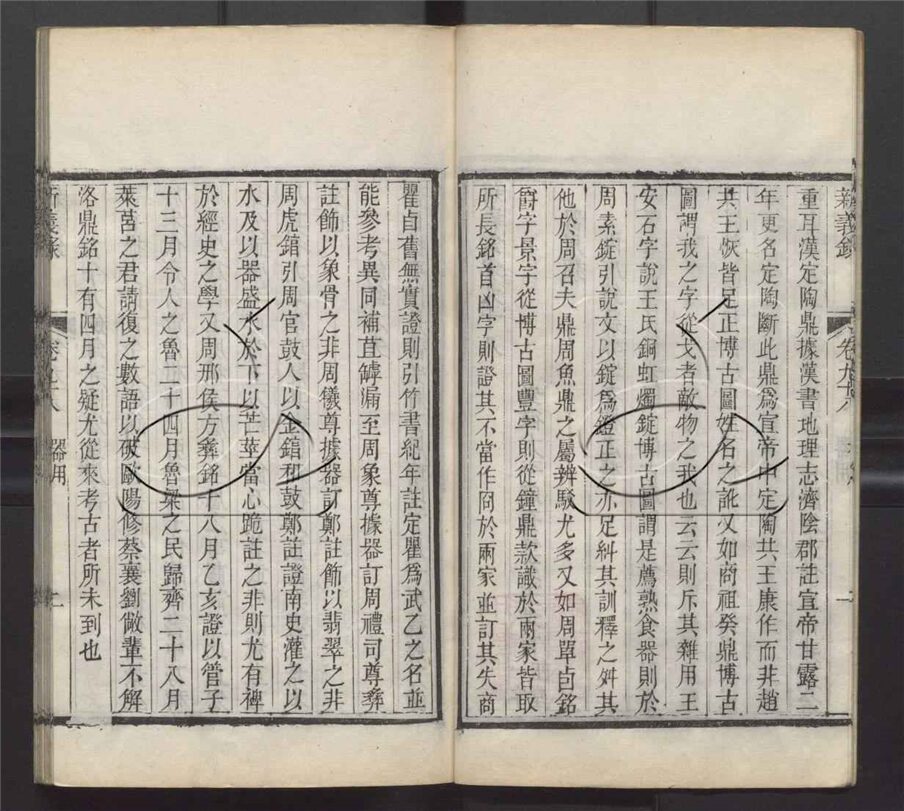 新義錄
卷九六
重耳漢定陶鼎據漢書地理志濟陰郡註宣帝甘露二
年更名定陶斷此鼎爲宣帝中定陶共王康作而非趙
共王恢皆足正博古圖姓名之訛又如商祖癸鼎博古
圖謂我之字從戈者敵物之我也云云則斥其雜用王
安石字說王氏銅虹燭錠博古圖謂是薦熟食器則於
周素錠引說文以錠爲鐙正之亦足糾其訓釋之舛其
他於周召夫鼎周魚鼎之屬辨駁尤多又如周單卣銘
爵字景字從博古圖豐字則從鐘鼎款識於兩家皆取
所長銘首凶字則證其不當作冏於兩家並訂其失商
瞿卣舊無實證則引竹書紀年註定瞿爲武乙之名並
能參考異同補苴罅漏至周象尊據器訂周禮司尊彝
註飾以象骨之非周犧尊據器訂鄭註飾以翡翠之非
周虎錞引周官鼓人以金錞和鼓鄭註證南史灌之以
水及以器盛水於下以芒莖當心跪註之非則尤有裨
於經史之學又周邢侯方彝銘十八月乙亥證以管子
十三月令人之魯二十四月魯梁之民歸齊二十八月
萊莒之君請復之數語以破歐陽修蔡襄劉敞輩不解
洛鼎銘十有四月之疑尤從來考古者所未到也
新義錄
卷九六
器用
二